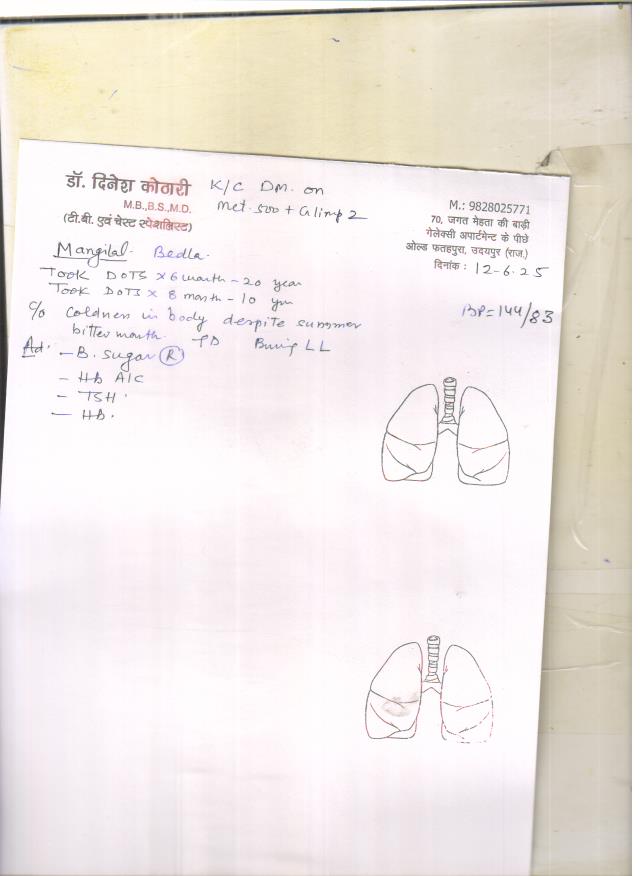 डॉ. दिनेश कोठारी
M.B.,B.S.,M.D.
(टी.बी. एवं चेस्ट स्पेशलिस्ट)
K/C DM. on
Met. 500 + Glimp 2
M.: 9828025771
70, जगत मेहता की बाड़ी
गेलेक्सी अपार्टमेन्ट के पीछे
ओल्ड फतहपुरा, उदयपुर (राज.)
दिनांक : 12-6-25
Mangilal. Bedla.
Took DOTS x 6 month - 20 year
Took DOTS x 8 month - 10 yr
BP = 144/83
C/o Coldness in body despite summer
bitter mouth. LL
Ad. - B. Sugar (R)
- HB A1C
- TSH.
- HB.